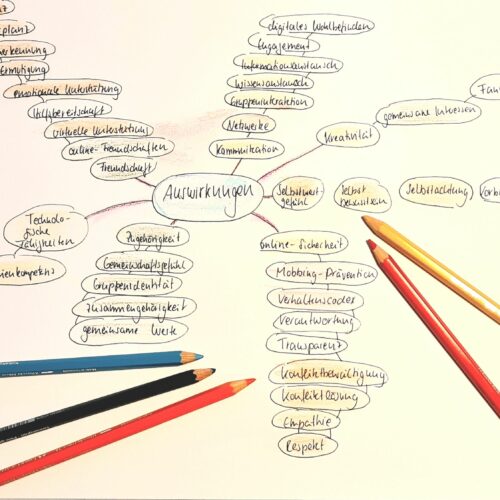 emotionale Unterstützung
Hilfsbereitschaft
virtuelle Unterstützung
online-Freundschaften
Freundschaft
digitales Wohlbefinden
Engagement
Informationsaustausch
Wissensaustausch
Gruppeninteraktion
Netzwerke
Kommunikation
Kreativität
gemeinsame Interessen
Auswirkungen
Selbstwert
gefühl
Selbst
bewusstsein
Selbstachtung
Technolo-
gische
Fähigkeiten
Zugehörigkeit
Gemeinschaftsgefühl
Gruppenidentität
Zusammengehörigkeit
gemeinsame Werte
online-Sicherheit
Mobbing-Prävention
Verhaltenscodex
Verantwortung
Transparenz
Konfliktbewältigung
Konfliktlösung
Empathie
Respekt